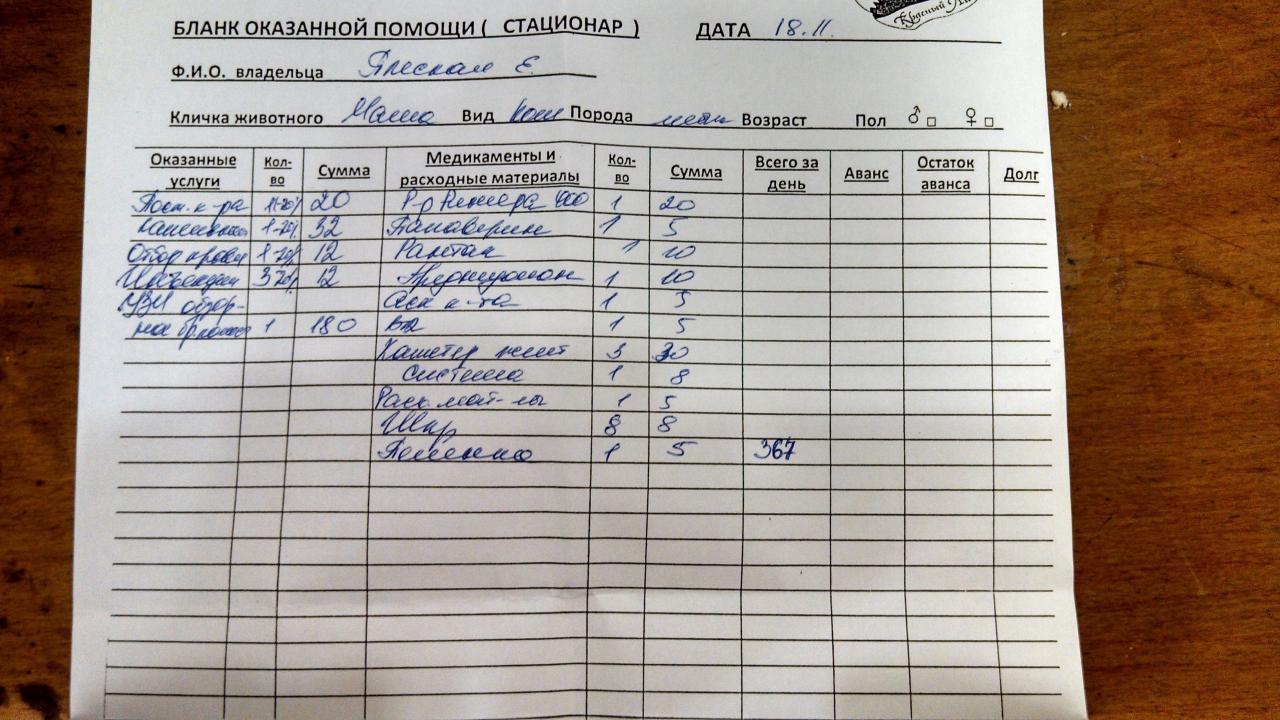 Красный
БЛАНК ОКАЗАННОЙ ПОМОЩИ ( СТАЦИОНАР ) ДАТА 18.11.
Ф.И.О. владельца Е.
Кличка животного Маша Вид кош Порода метис Возраст Пол ♂ □ ♀ □
Оказанные услуги Кол-во Сумма Медикаменты и расходные материалы Кол-во Сумма Всего за день Аванс Остаток аванса Долг
Пост. к-ра 1-20% 20 Р-р Рингера 400 1 20
1-20% 32 Папаверин 1 5
Отбор крови 1-20% 12 Рантак 1 10
Инъекции 3 20% 12 Преднизолон 1 10
УЗИ обзор- Аск к-та 1 5
ное брюшн 1 180 1 5
Катетер 3 30
система 1 8
Расх. мат-лы 1 5
Шпр 8 8
Пеленка 1 5 367